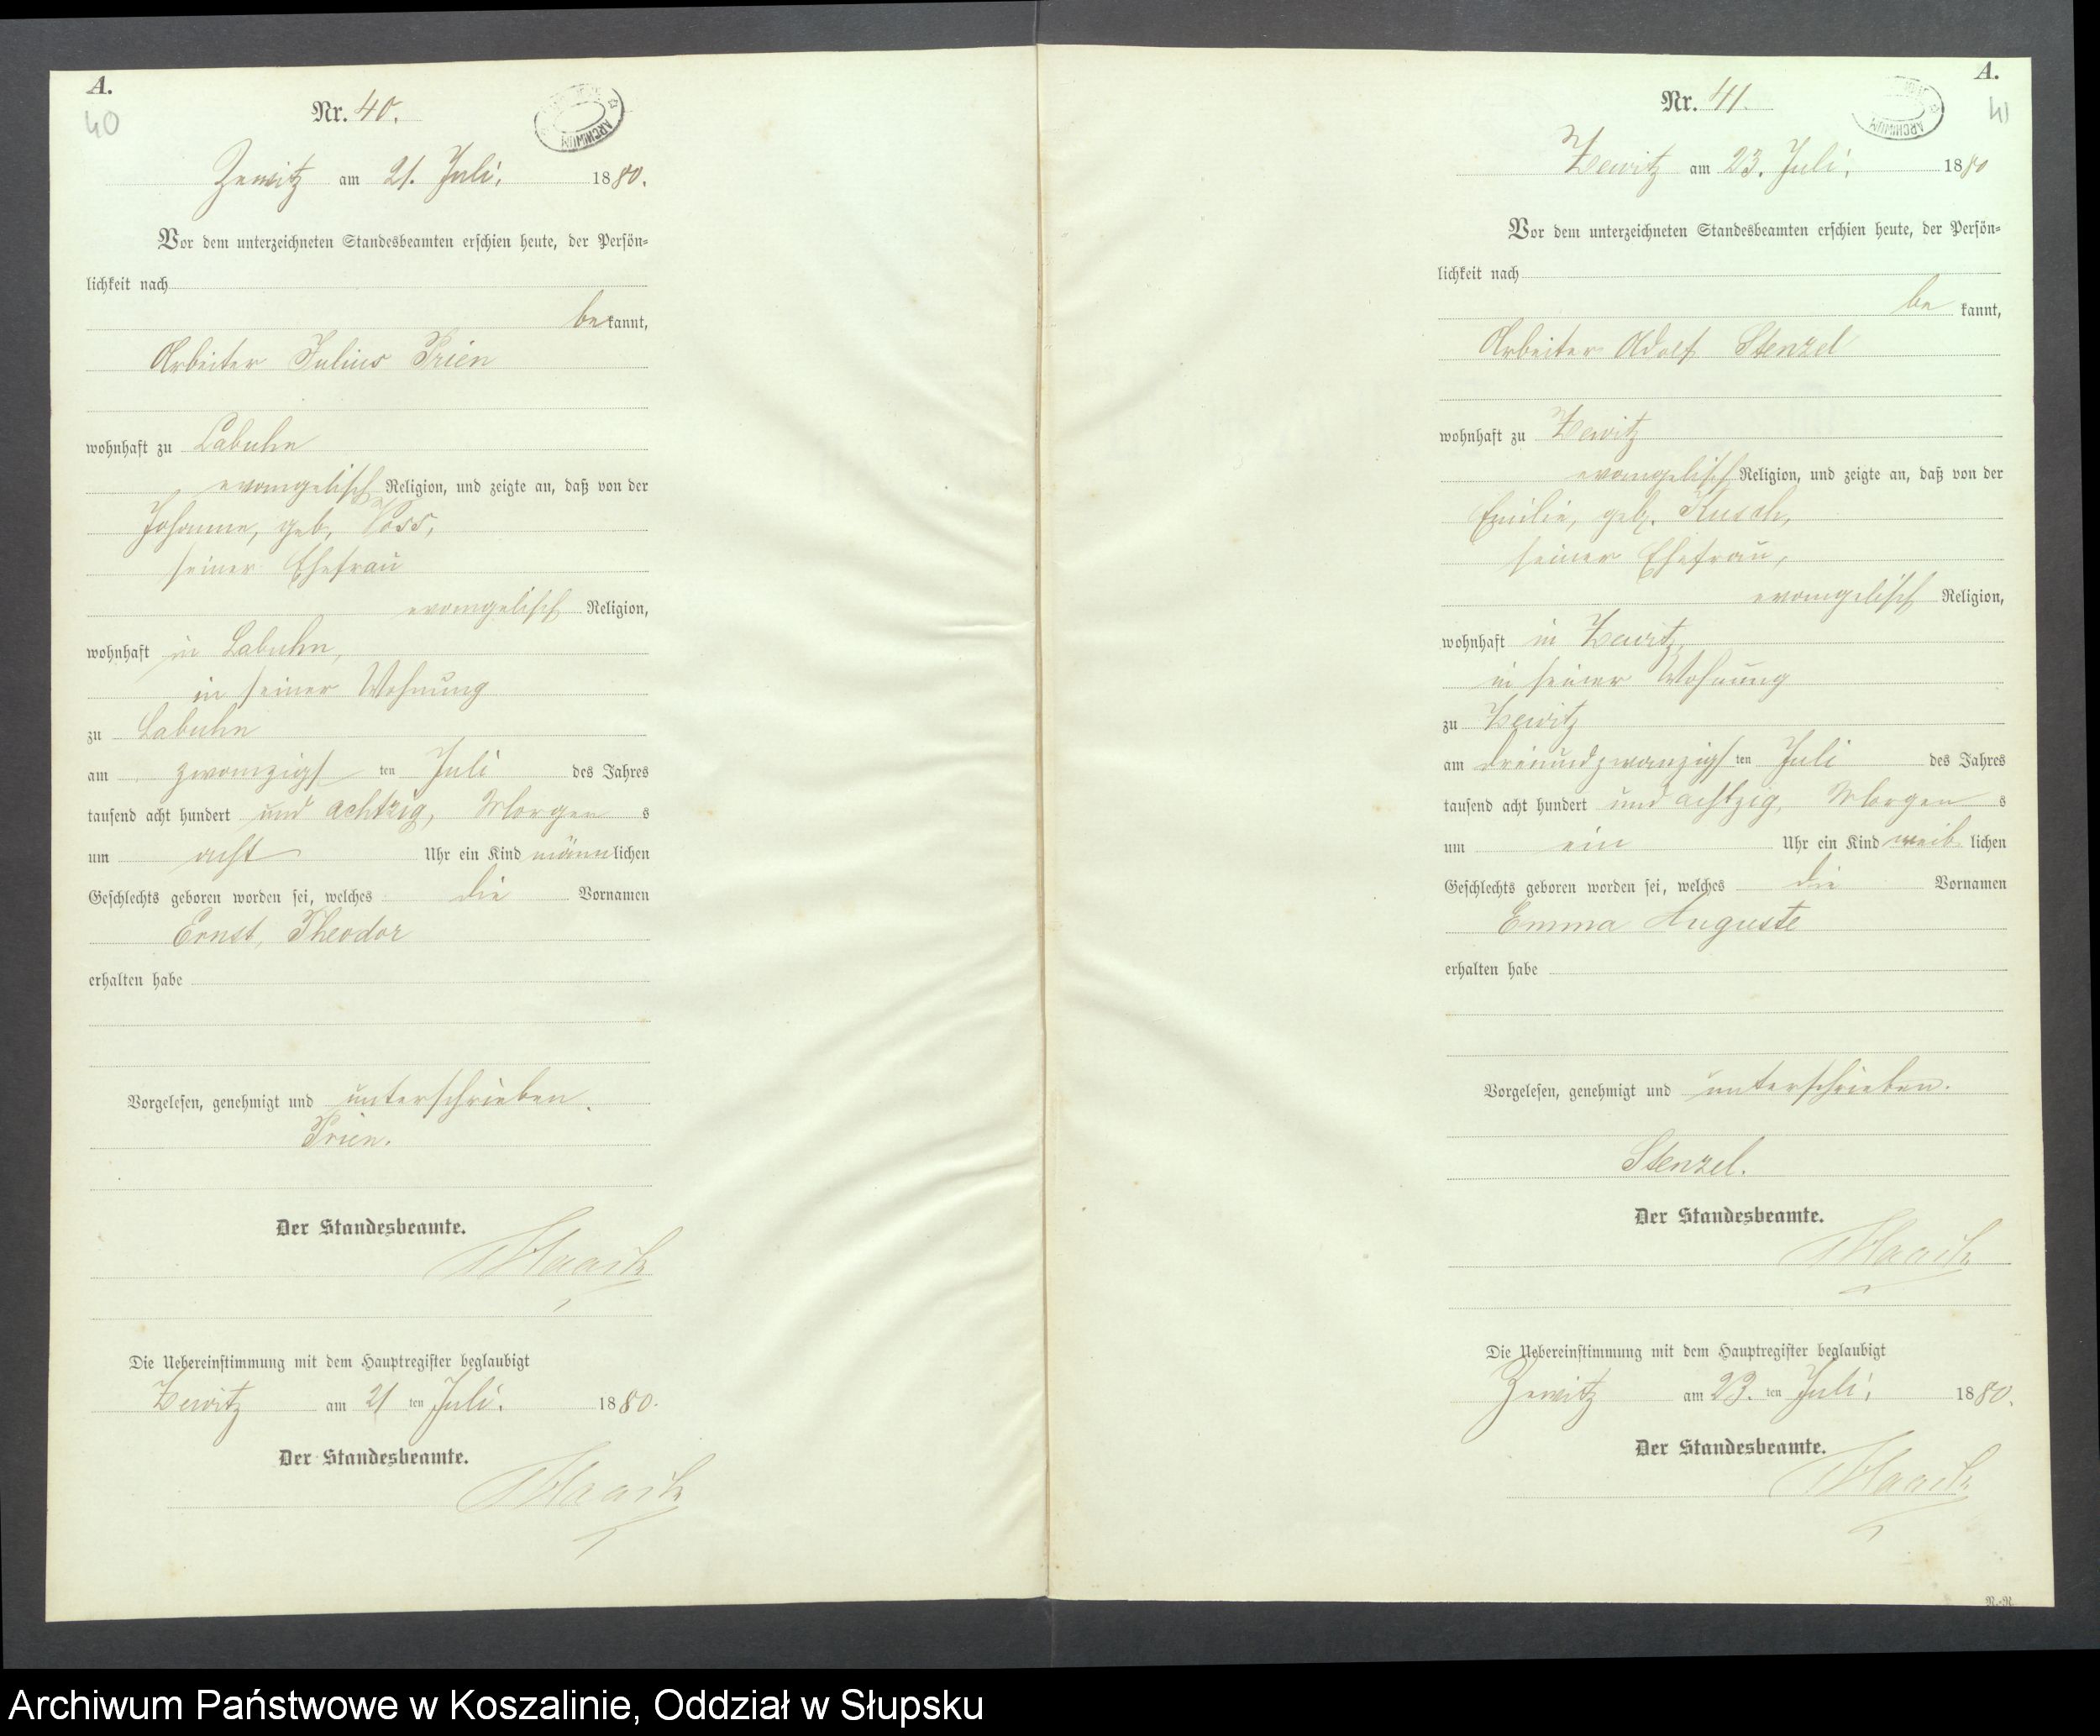 A.
40
Nr. 40.
ARCHIWUM
Zewitz am 21. Juli, 1880.
Vor dem unterzeichneten Standesbeamten erschien heute, der Persön-
lichkeit nach
bekannt,
Arbeiter Julius Prien
wohnhaft zu Labuhn
evangelisch Religion, und zeigte an, daß von der
Johanne, geb. Voss,
seiner Ehefrau
evangelisch Religion,
wohnhaft in Labuhn,
in seiner Wohnung
zu Labuhn
am zwanzigsten Juli des Jahres
tausend acht hundert und achtzig, Morgens
um acht Uhr ein Kind männlichen
Geschlechts geboren worden sei, welches die Vornamen
Ernst, Theodor
erhalten habe
Vorgelesen, genehmigt und unterschrieben.
Prien.
Der Standesbeamte.
Die Uebereinstimmung mit dem Hauptregister beglaubigt
Zewitz am 21 ten Juli. 1880.
Der Standesbeamte.
A.
41
Nr. 41.
ARCHIWUM
Zewitz am 23. Juli, 1880
Vor dem unterzeichneten Standesbeamten erschien heute, der Persön-
lichkeit nach
bekannt,
Arbeiter Adolf Stenzel
wohnhaft zu Zewitz
evangelisch Religion, und zeigte an, daß von der
Emilie, geb. Kusch,
seiner Ehefrau,
evangelisch Religion,
wohnhaft in Zewitz,
in seiner Wohnung
zu Zewitz
am dreiundzwanzigsten Juli des Jahres
tausend acht hundert und achtzig, Morgens
um ein Uhr ein Kind weiblichen
Geschlechts geboren worden sei, welches die Vornamen
Emma Auguste
erhalten habe
Vorgelesen, genehmigt und unterschrieben.
Stenzel.
Der Standesbeamte.
Die Uebereinstimmung mit dem Hauptregister beglaubigt
Zewitz am 23. ten Juli, 1880.
Der Standesbeamte.
Archiwum Państwowe w Koszalinie, Oddział w Słupsku